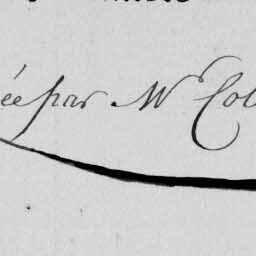 ée par Mr Col